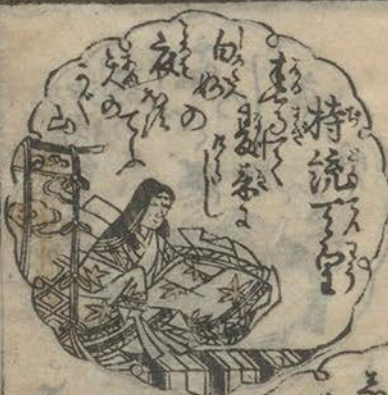 持統天皇
春過て
夏来に
けらし
白妙の
衣ほす
てふ
天の
かぐ
山